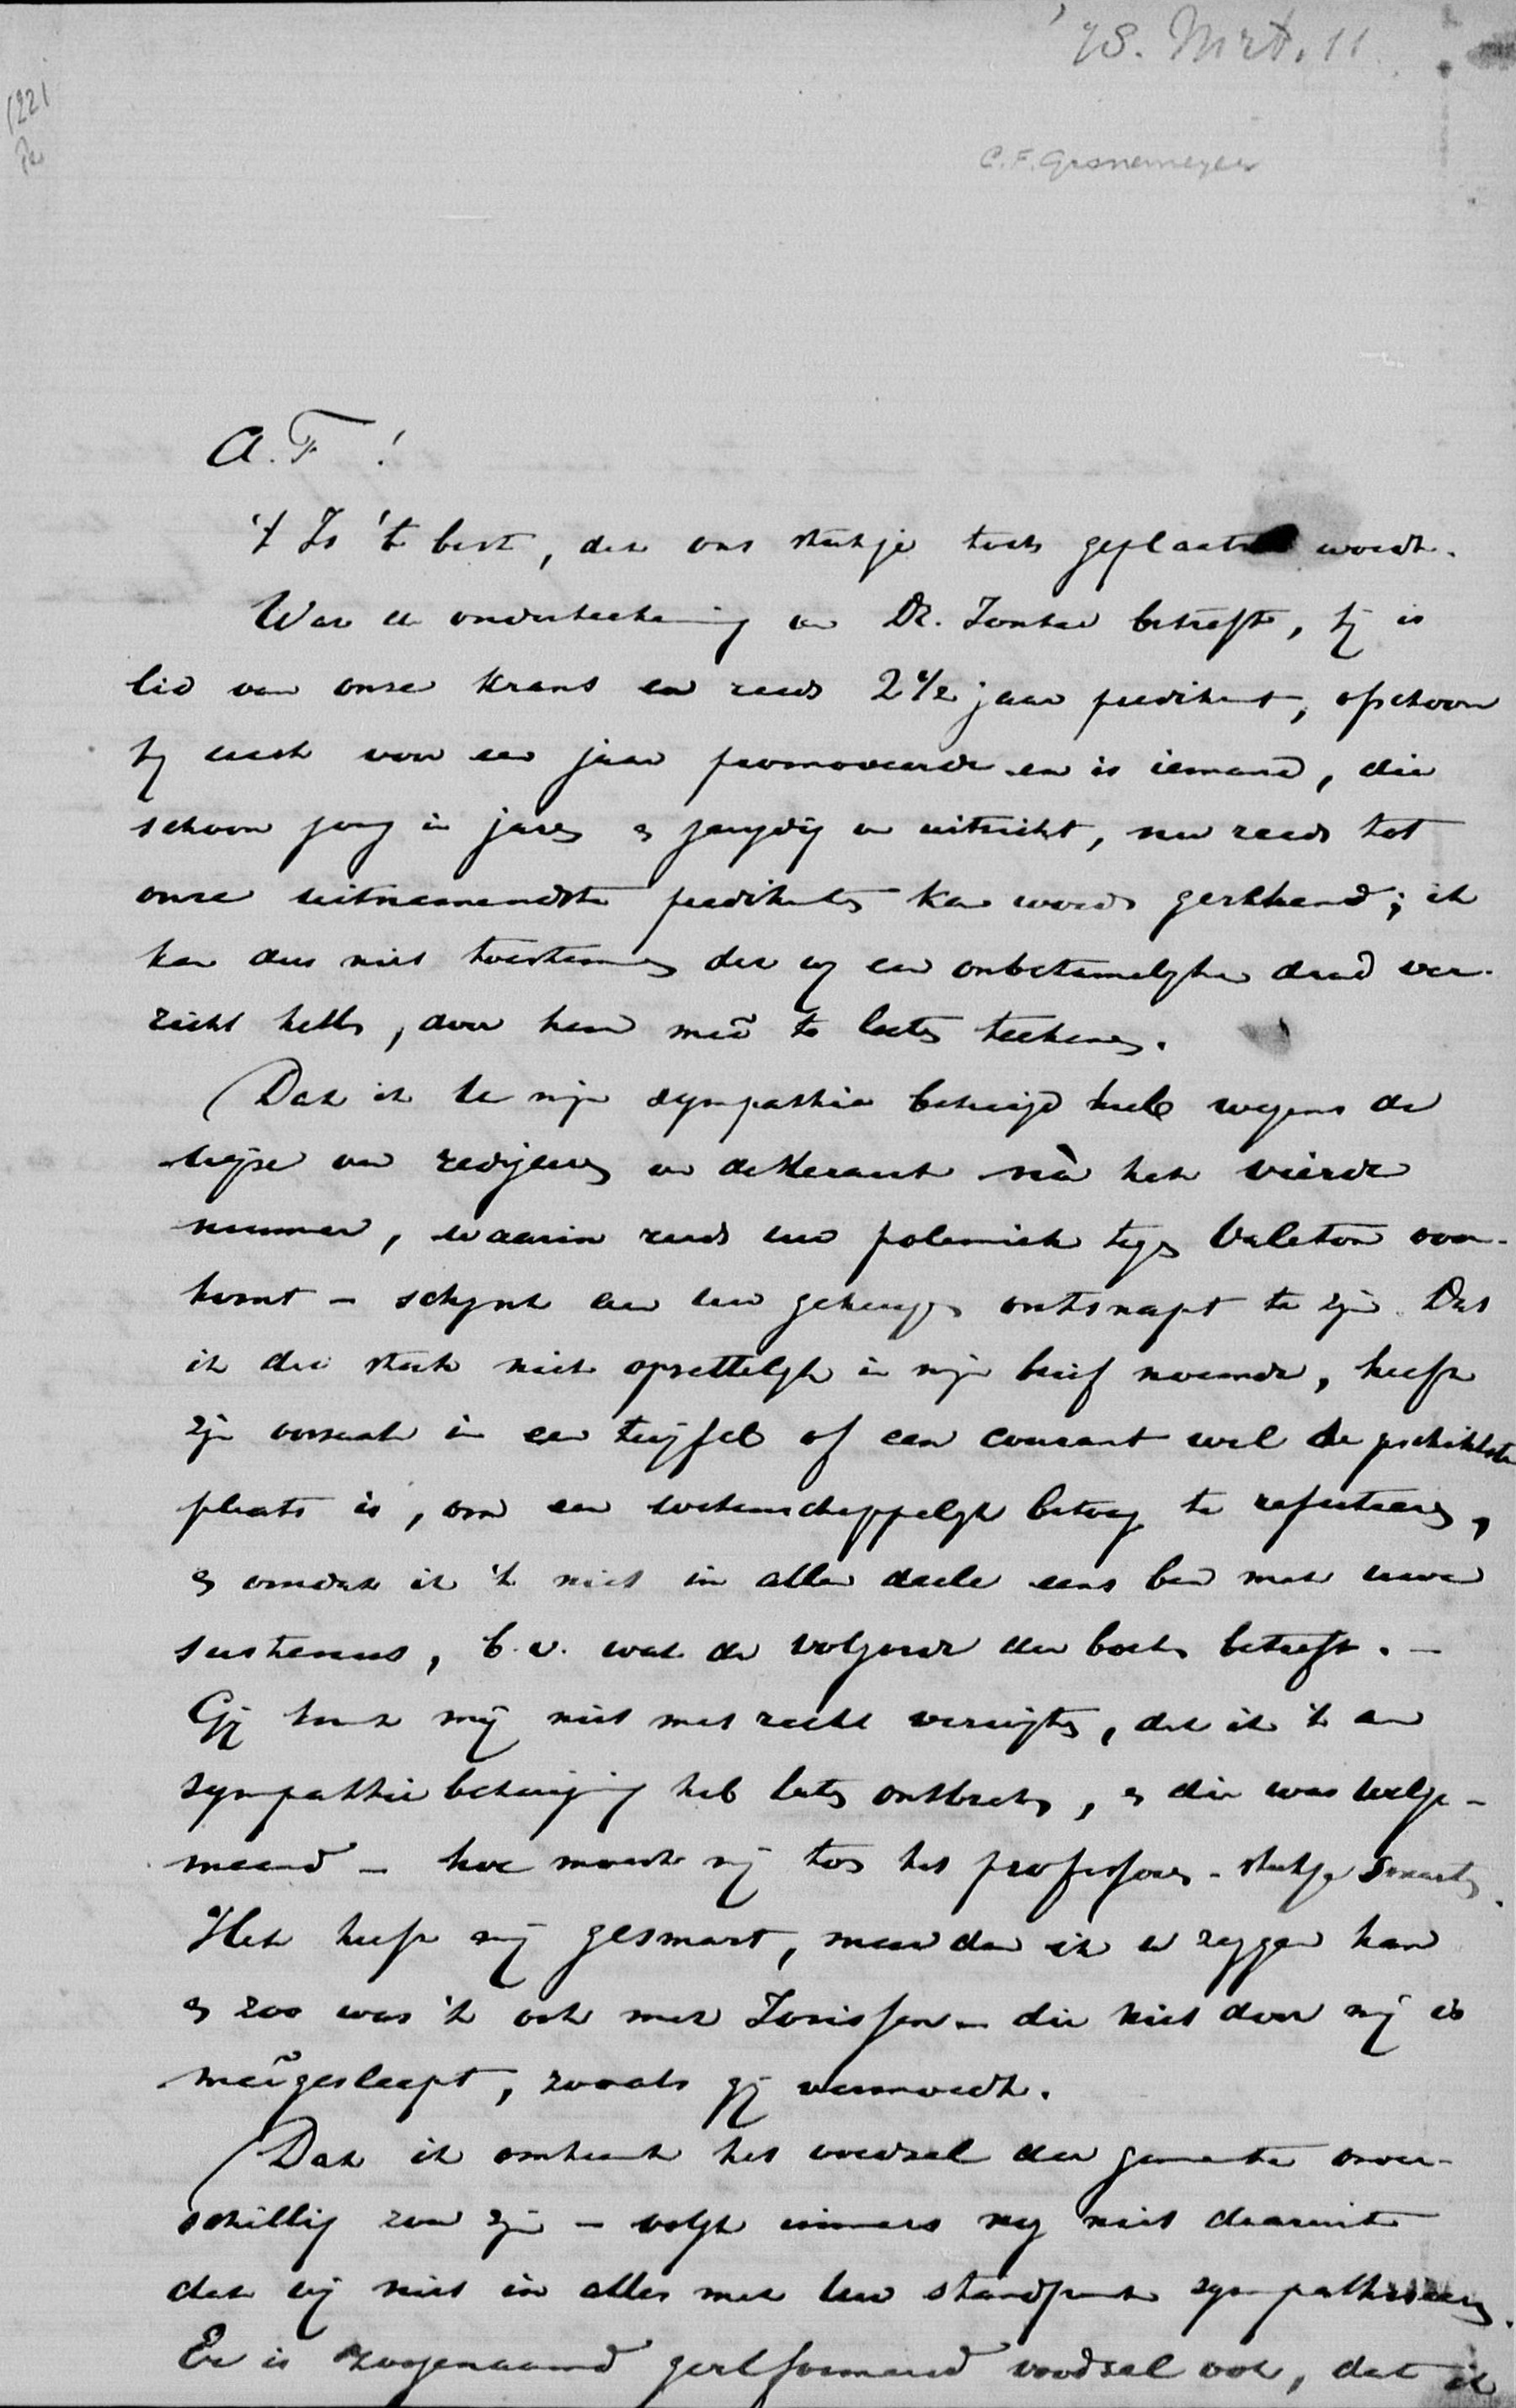 '78. Mrt. 11
1221
C.F. Gronemeyer
A. F !
't Is 't best, dat ons stukje toch geplaatst wordt.
Wat de onderteekening van Dr. Jonker betreft, hij is
lid van onze krans en reeds 2 1/2 jaar predikant, ofschoon
hij eerst voor een jaar promoveerde en is iemand, die
schoon jong in jaren en jeugdig van uitzicht, nu reeds tot
onze uitnemendste predikanten kan worden gerekend; ik
kan dus niet toestemmen dat wij een onbetamelijke daad ver-
richt hebben, door hem meê te laten teekenen.
Dat ik U mijn sympathie betuigd heb wegens de
wijze van redigeren van de Heraut nà het vierde
nummer, waarin reeds uw polemiek tegen Valeton voor-
komt – schijnt aan uw geheugen ontsnapt te zijn. Dat
ik dat stuk niet opzettelijk in mijn brief noemde, heeft
zijn oorzaak in een twijfel of een courant wel de geschiktste
plaats is, om een wetenschappelijk betoog te refuteeren,
en omdat ik 't niet in allen deele eens ben met uwe
sustenues, b.v. wat de volgorde der boeken betreft. –
Gij kunt mij niet met recht verwijten, dat ik 't aan
sympathie betuiging heb laten ontbreken, en die was welge-
meend – hoe moest mij toen het professoren-stukje smarten.
Het heeft mij gesmart, meer dan ik u zeggen kan
en zoo was 't ook met Jorissen – die niet door mij is
meêgesleept, zooals gij vermoedt.
Dat ik omtrent het voedsel der gemeente onver-
schillig zou zijn – volgt immers nog niet daaruit
dat wij niet in alles met uw standpunt sympathiseeren.
Er is zoogenaamd gereformeerd voedsel ook, dat ik